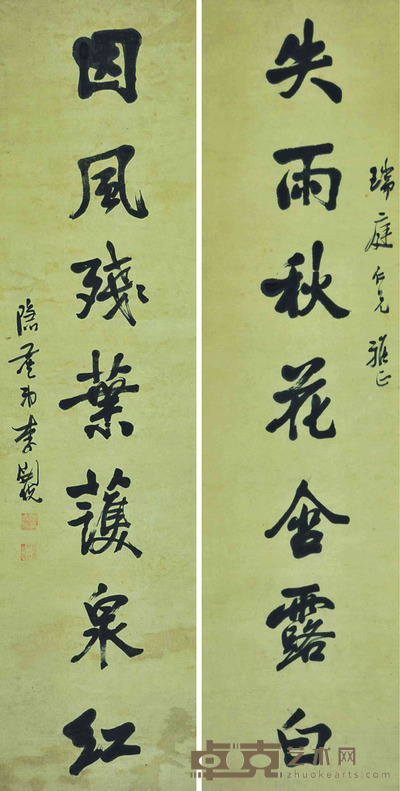 瑞庭仁兄雅正
失雨秋花含露白
因風殘葉護泉紅
弟李
卓克艺术网
zhuokearts.com